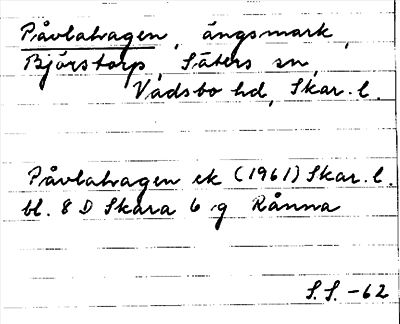 Påvlahagen, ängsmark,
Bjärstorp, Säters sn,
Vadsbo hd, Skar. l.
Påvlahagen ek (1961) Skar. l.
bl. 8 D Skara 6 g Rånna
S.S. -62